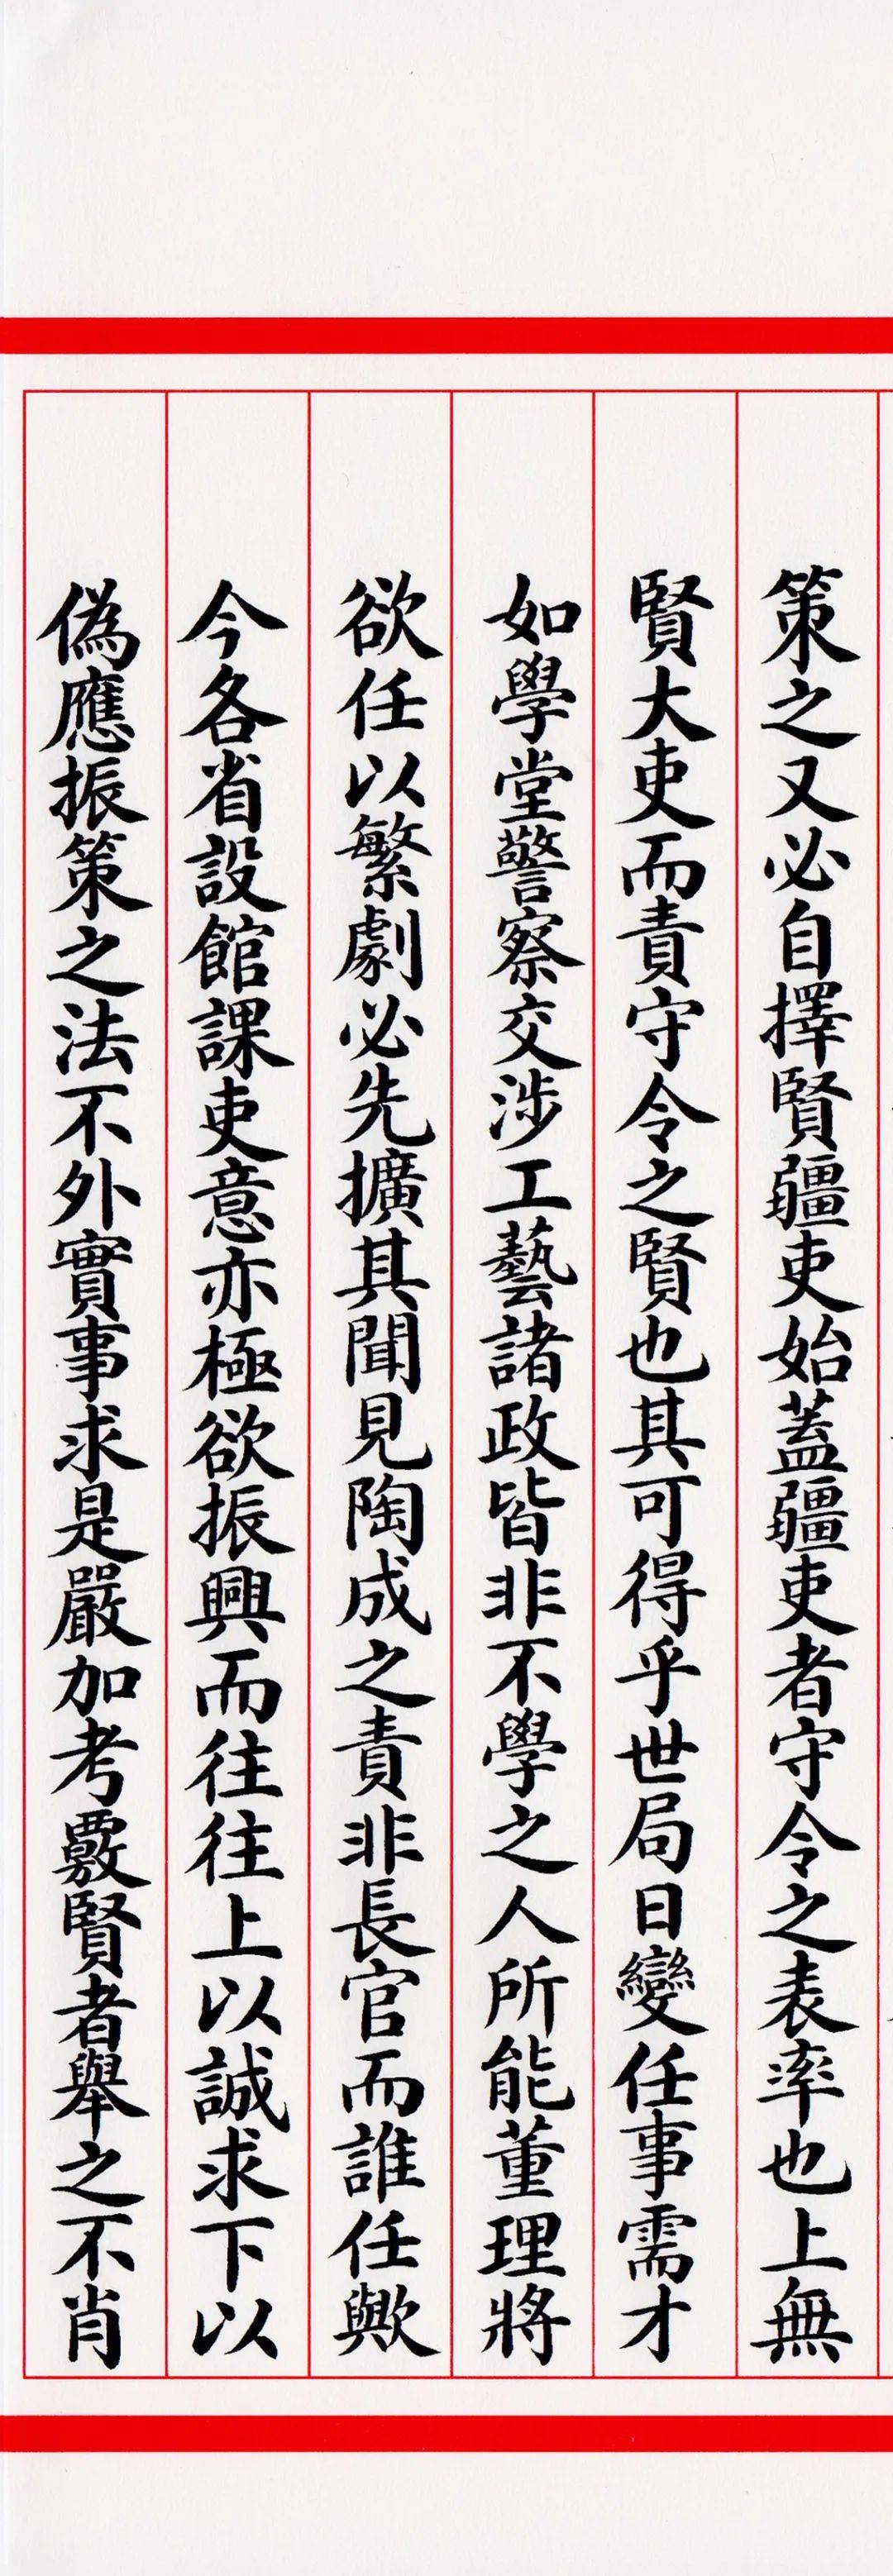 策之又必自擇賢疆吏始蓋疆吏者守令之表率也上無
賢大吏而責守令之賢也其可得乎世局日變任事需才
如學堂警察交涉工藝諸政皆非不學之人所能董理將
欲任以繁劇必先擴其聞見陶成之責非長官而誰任歟
今各省設館課吏意亦極欲振興而往往上以誠求下以
偽應振策之法不外實事求是嚴加考覈賢者舉之不肖